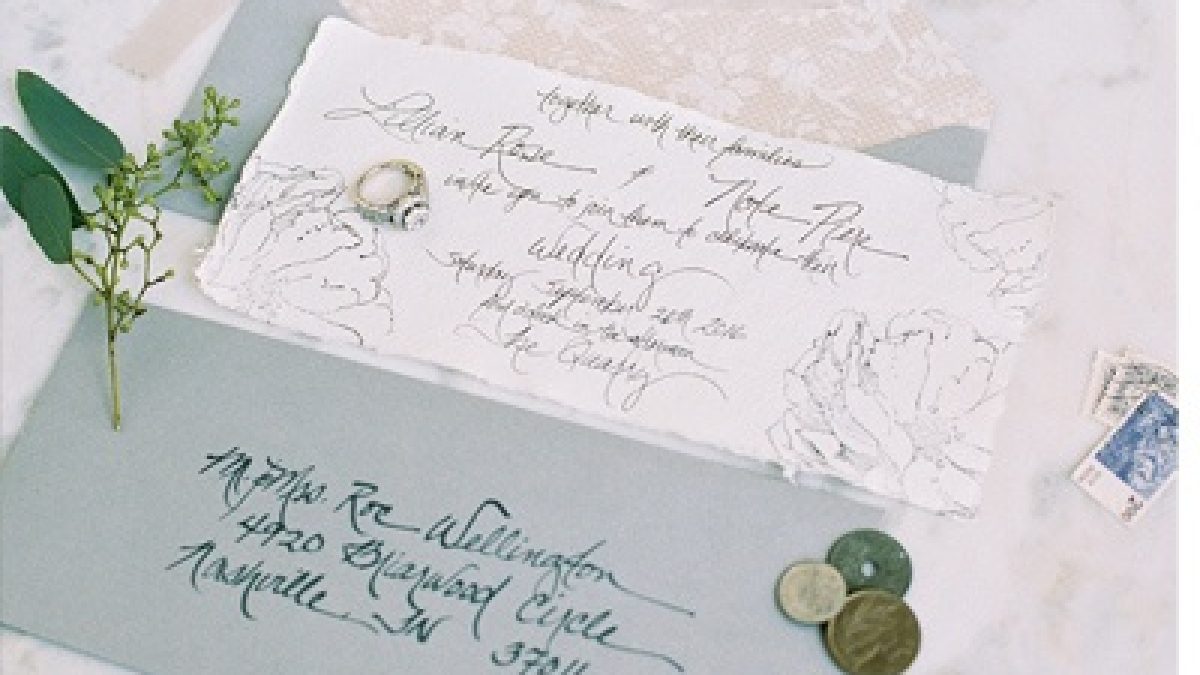 together with their families
Lillian Rowe
invite you to join them to celebrate their
wedding
Saturday September 2016
in the afternoon
Mr. Mrs. Roe Wellington
4920 Briarwood Circle
Nashville TN 37011